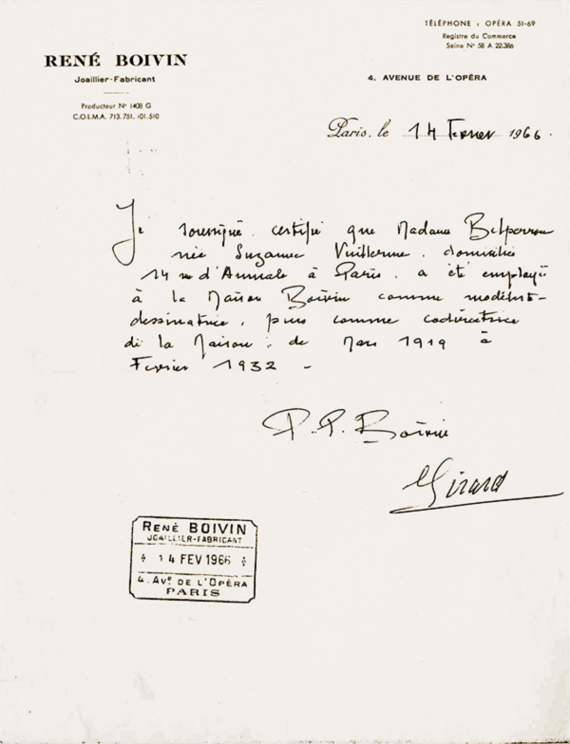 TÉLÉPHONE : OPÉRA 51-69
Registre du Commerce
Seine N° 58 A 22.386
RENÉ BOIVIN
Joaillier-Fabricant
4, AVENUE DE L'OPÉRA
Producteur N° 1408 G
C.O.L.M.A. 713.751. 101.510
Paris, le 14 Fevrier 1966.
Je soussigné. certifie que Madame Belperron
née Suzanne Vuillerme. domiciliée
14 rue d'Aumale à Paris. a été employée
à la Maison Boivin comme modéliste-
dessinatrice, puis comme codirectrice
de la Maison : de Mars 1919 à
Fevrier 1932 -
P.P. Boivin
Girard
RENÉ BOIVIN
JOAILLIER-FABRICANT
14 FEV 1966
4. AVE DE L'OPÉRA
PARIS